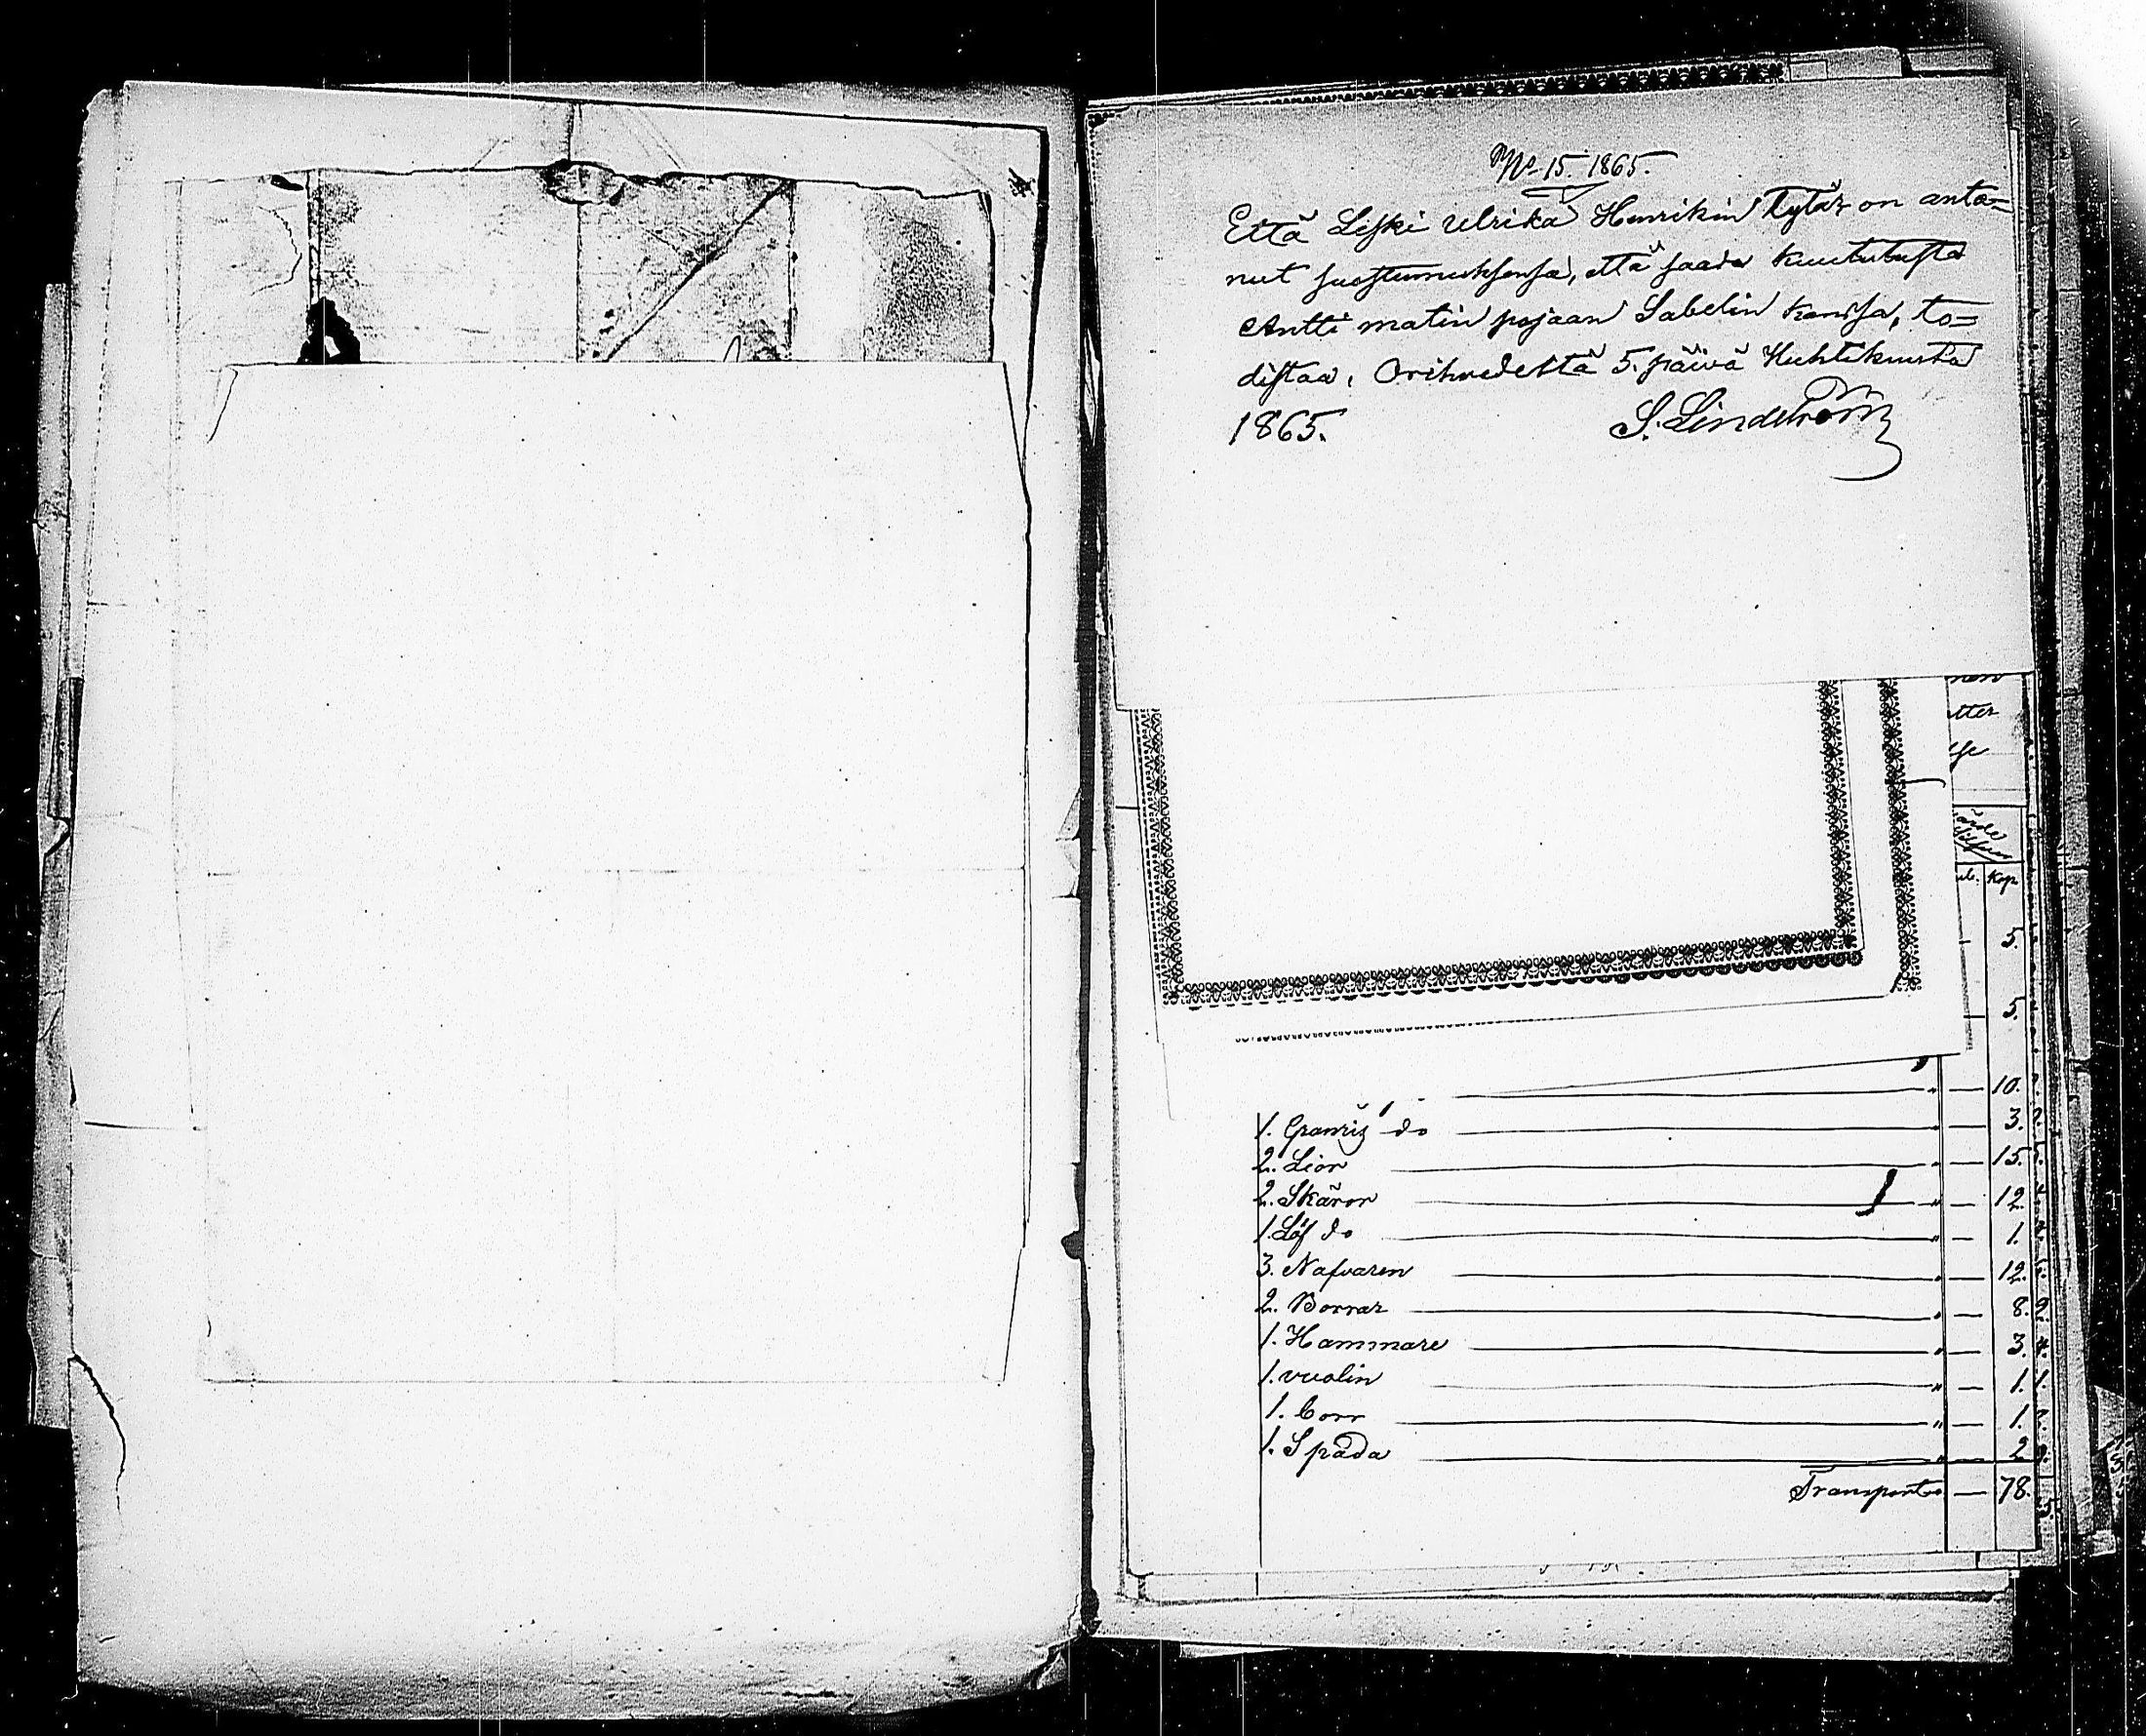 No 15. 1865.
Että Leski Ulrika Henrikin tytär on anta=
nut suostumuksensa, että saada kuulutusta
Antti matin pojaan Sabelin kanssa, to=
distaa, Orihvedeltä 5. päivä Huhtikuusta
1865. S. Lindström
nen
tter
lse
ärde
ub. Kop
— 5.
— 5.
" — 10.
1. do " — 3.
2. Lior " — 15.
2. Skäror " — 12.
1. Löf do " — 1.
3. Nafvaren " — 12.
2. Borrar " — 8.
1. Hammare " — 3.
1. vuolin " — 1.
1. " — 1.
1. Spada " — 2
Transport — 78.